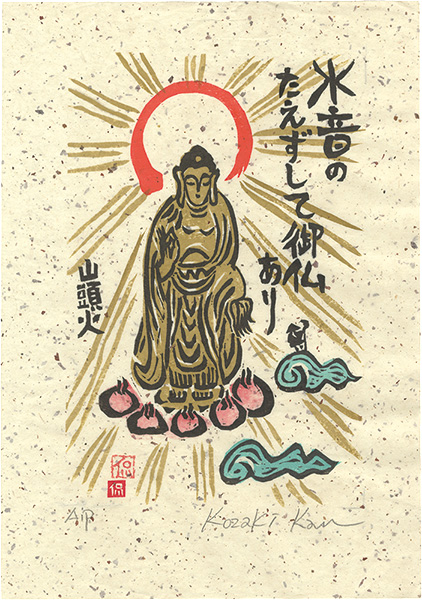 水音の
たえずして御仏
あり
山頭火
侃
A/P
Kozaki Kan